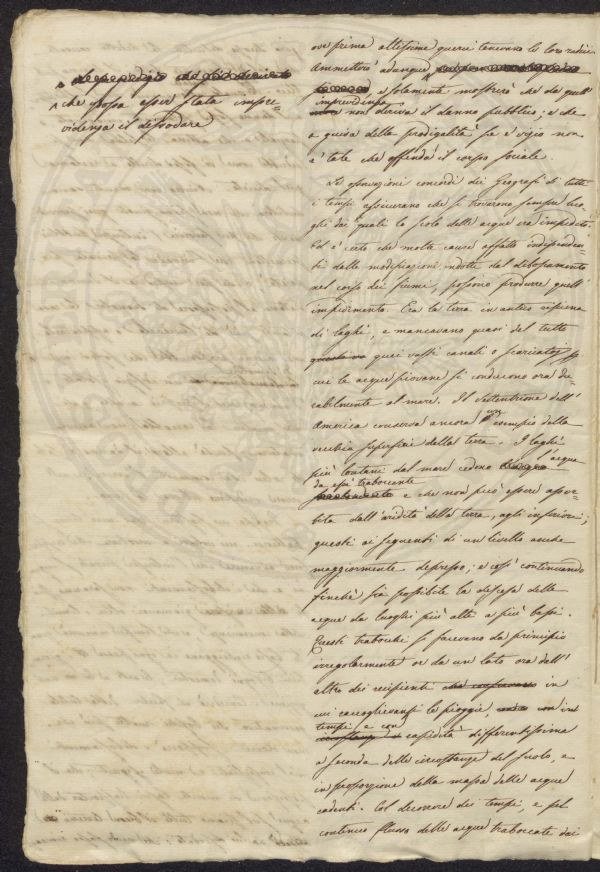 che possa esser stata impre-
videnza il dissodare
ove prima altissime querce tenevano le loro radici.
Ammetterò adunque
e solamente mostrerò che da quell'
imprevidenza
non deriva il danno pubblico; e che
a guisa della prodigalità se è vizio non
è tale che offenda il corpo sociale.
Le osservazioni concordi dei Geografi di tutti
i tempi assicurano che si trovarono sempre luo-
ghi dai quali lo scolo delle acque era impedito.
Ed è certo che molte cause affatto independen-
ti dalle modificazioni indotte dal disboscamento
nel corso dei fiumi, possono produrre quell'
impedimento. Era la terra in antico ripiena
di laghi, e mancavano quasi del tutto
quei vasti canali o scaricatoj per
cui le acque piovane si conducono ora du-
rabilmente al mare. Il Settentrione dell'
America conserva ancora un esempio della
vecchia superficie della terra. I laghi
più lontani dal mare cedono l'acqua
da essi traboccante
e che non può essere assor-
bita dall'aridità della terra, agli inferiori;
questi ai seguenti di un livello anche
maggiormente depresso; e così continuando
finchè sia possibile la discesa delle
acque da luoghi più alti a più bassi.
Questi trabocchi si facevano da principio
irregolarmente or da un lato ora dall'
altro dei recipienti in
cui raccoglievansi le pioggie,
tempi e con
rapidità differentissima
a seconda delle circostanze del suolo, e
in proporzione della massa delle acque
cadenti. Col decorrere dei tempi, e pel
continuo flusso delle acque traboccate dai